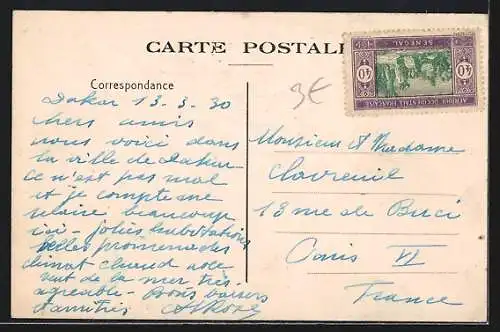 CARTE POSTALE
Correspondance
Dakar 13-3-30
chers amis
nous voici dans
la ville de Dakar
ce n'est pas mal
et je compte me
plaire beaucoup
ici - jolies habitations
belles promenades
climat chaud avec
vent de la mer très
agréable - Bons baisers
d'amitiés
3€
SENEGAL
40 40
AFRIQUE OCCIDENTALE FRANÇAISE
Monsieur et Madame
Clavreuil
13 rue de Buci
Paris VI
France